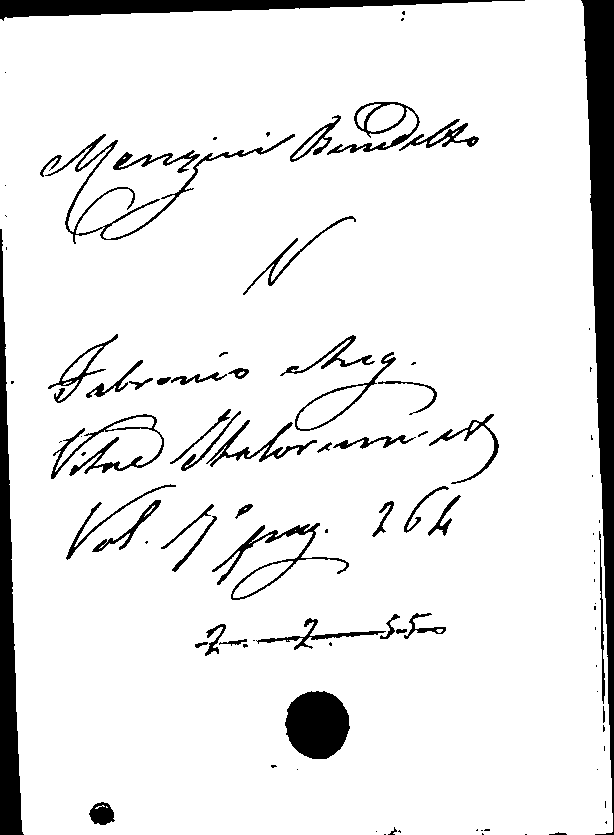 Menzini Benedetto
V
Fabronio Ang.
Vitae Italorum etc
Vol. 7º pag. 264
2. 2. 55